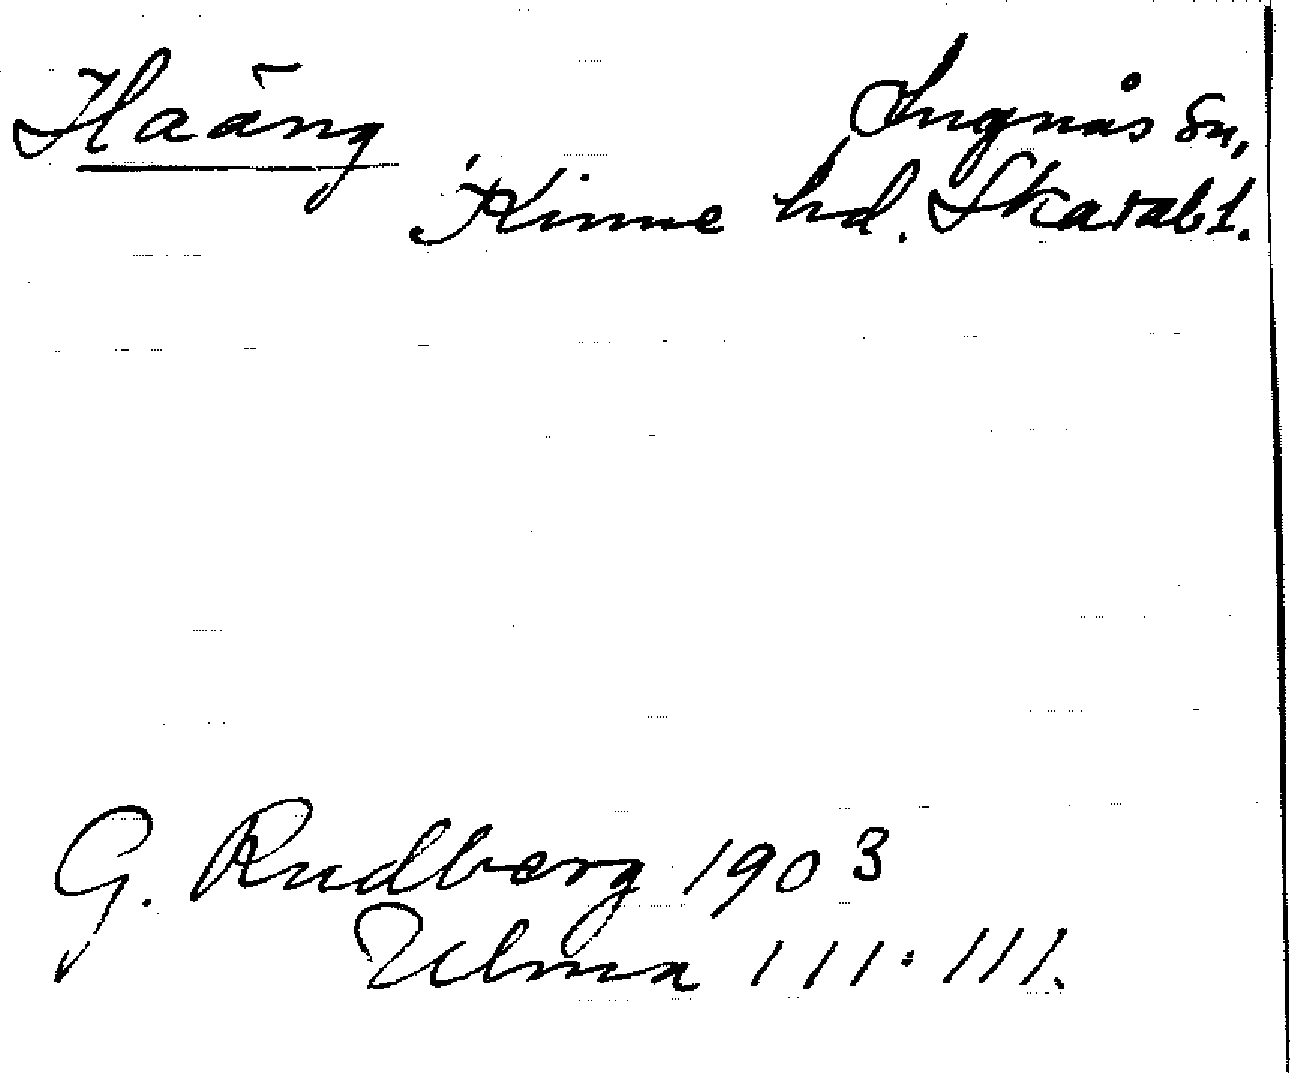 Haäng Lugnås sn,
Kinne hd. Skarabl.
G. Rudberg 1903
Ulma 111:111.